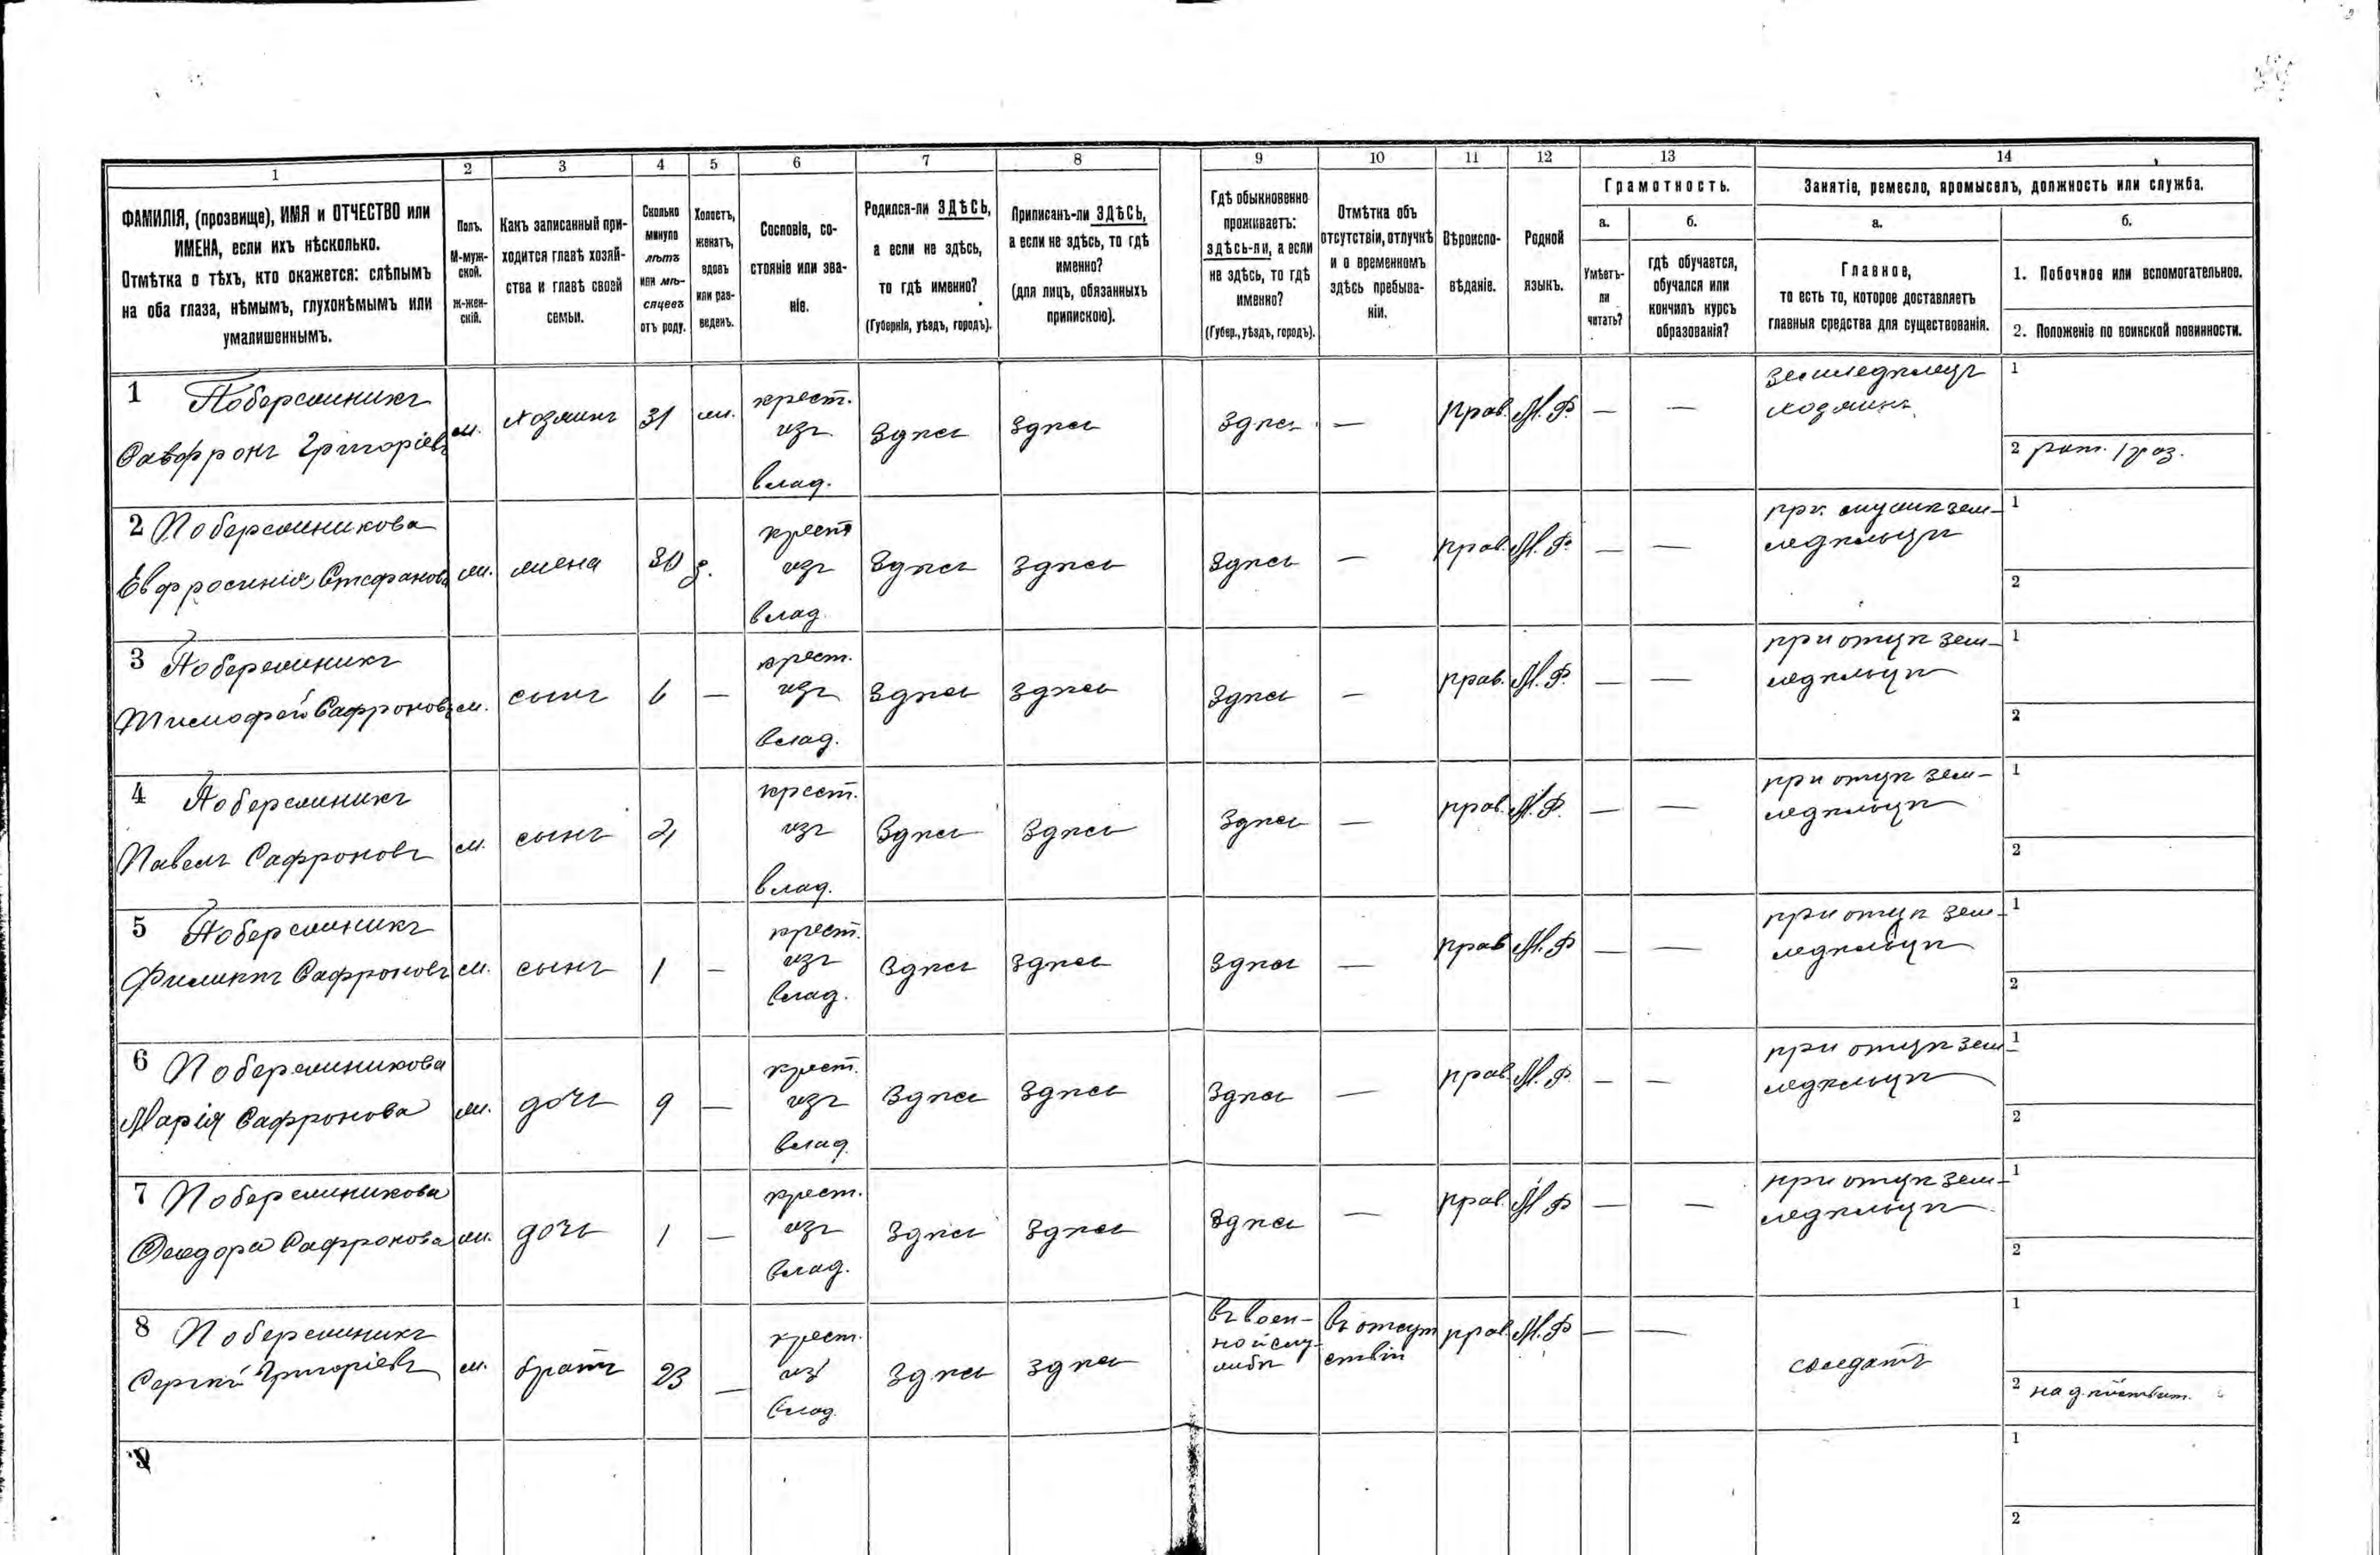 1 2 3 4 5 6 7 8 9 10 11 12 13 14
ФАМИЛІЯ, (прозвище), ИМЯ и ОТЧЕСТВО или
ИМЕНА, если ихъ нѣсколько.
Отмѣтка о тѣхъ, кто окажется: слѣпымъ
на оба глаза, нѣмымъ, глухонѣмымъ или
умалишеннымъ.
Полъ.
М-муж-
ской.
ж-жен-
скій.
Какъ записанный при-
ходится главѣ хозяй-
ства и главѣ своей
семьи.
Сколько
минуло
лѣтъ
или мѣ-
сяцевъ
отъ роду.
Холостъ,
женатъ,
вдовъ
или раз-
веденъ.
Сословіе, со-
стояніе или зва-
ніе.
Родился-ли ЗДѢСЬ,
а если не здѣсь,
то гдѣ именно?
(Губернія, уѣздъ, городъ).
Приписанъ-ли ЗДѢСЬ,
а если не здѣсь, то гдѣ
именно?
(для лицъ, обязанныхъ
припискою).
Гдѣ обыкновенно
проживаетъ:
здѣсь-ли, а если
не здѣсь, то гдѣ
именно?
(Губер., уѣздъ, городъ).
Отмѣтка объ
отсутствіи, отлучкѣ
и о временномъ
здѣсь пребыва-
ніи.
Вѣроиспо-
вѣданіе.
Родной
языкъ.
Грамотность.
а.
Умѣетъ-
ли
читать?
б.
гдѣ обучается,
обучался или
кончилъ курсъ
образованія?
Занятіе, ремесло, промыселъ, должность или служба.
а.
Главное,
то есть то, которое доставляетъ
главныя средства для существованія.
б.
1. Побочное или вспомогательное.
2. Положеніе по воинской повинности.
1 Побережникъ
Савфронъ Григоріевъ
м.
хозяинъ
31
ж.
крест.
изъ
влад.
здѣсь
здѣсь
здѣсь
—
прав.
М. Ф.
—
—
земледѣлецъ
хозяинъ
1
2 рат. 1 раз.
2 Побережникова
Евфросинія Стефанова
ж.
жена
30
з.
крест
изъ
влад.
здѣсь
здѣсь
здѣсь
—
прав.
М. Ф.
—
—
при мужѣ зем-
ледѣльцѣ
1
2
3 Побережникъ
Тимофей Сафроновъ
м.
сынъ
6
—
крест.
изъ
влад.
здѣсь
здѣсь
здѣсь
—
прав.
М. Ф.
—
—
при отцѣ зем-
ледѣльцѣ
1
2
4 Побережникъ
Павелъ Сафроновъ
м.
сынъ
крест.
изъ
влад.
здѣсь
здѣсь
здѣсь
—
прав.
М. Ф.
—
—
при отцѣ зем-
ледѣльцѣ
1
2
5 Побережникъ
Филиппъ Сафроновъ
м.
сынъ
1
—
крест.
изъ
влад.
здѣсь
здѣсь
здѣсь
—
прав
М. Ф
—
—
при отцѣ зем-
ледѣльцѣ
1
2
6 Побережникова
Марія Сафронова
ж.
дочь
9
—
крест.
изъ
влад.
здѣсь
здѣсь
здѣсь
—
прав.
М. Ф.
—
—
при отцѣ зем-
ледѣльцѣ
1
2
7 Побережникова
Феодора Сафронова
ж.
дочь
1
—
крест.
изъ
влад.
здѣсь
здѣсь
здѣсь
—
прав.
М Ф
—
—
при отцѣ зем-
ледѣльцѣ
1
2
8 Побережникъ
Сергѣй Григоріевъ
м.
братъ
23
—
крест.
изъ
влад.
здѣсь
здѣсь
въ воен-
ной слу-
жбѣ
въ отсут
ствіи
прав.
М. Ф
—
—
солдатъ
1
2 на д.
9
1
2